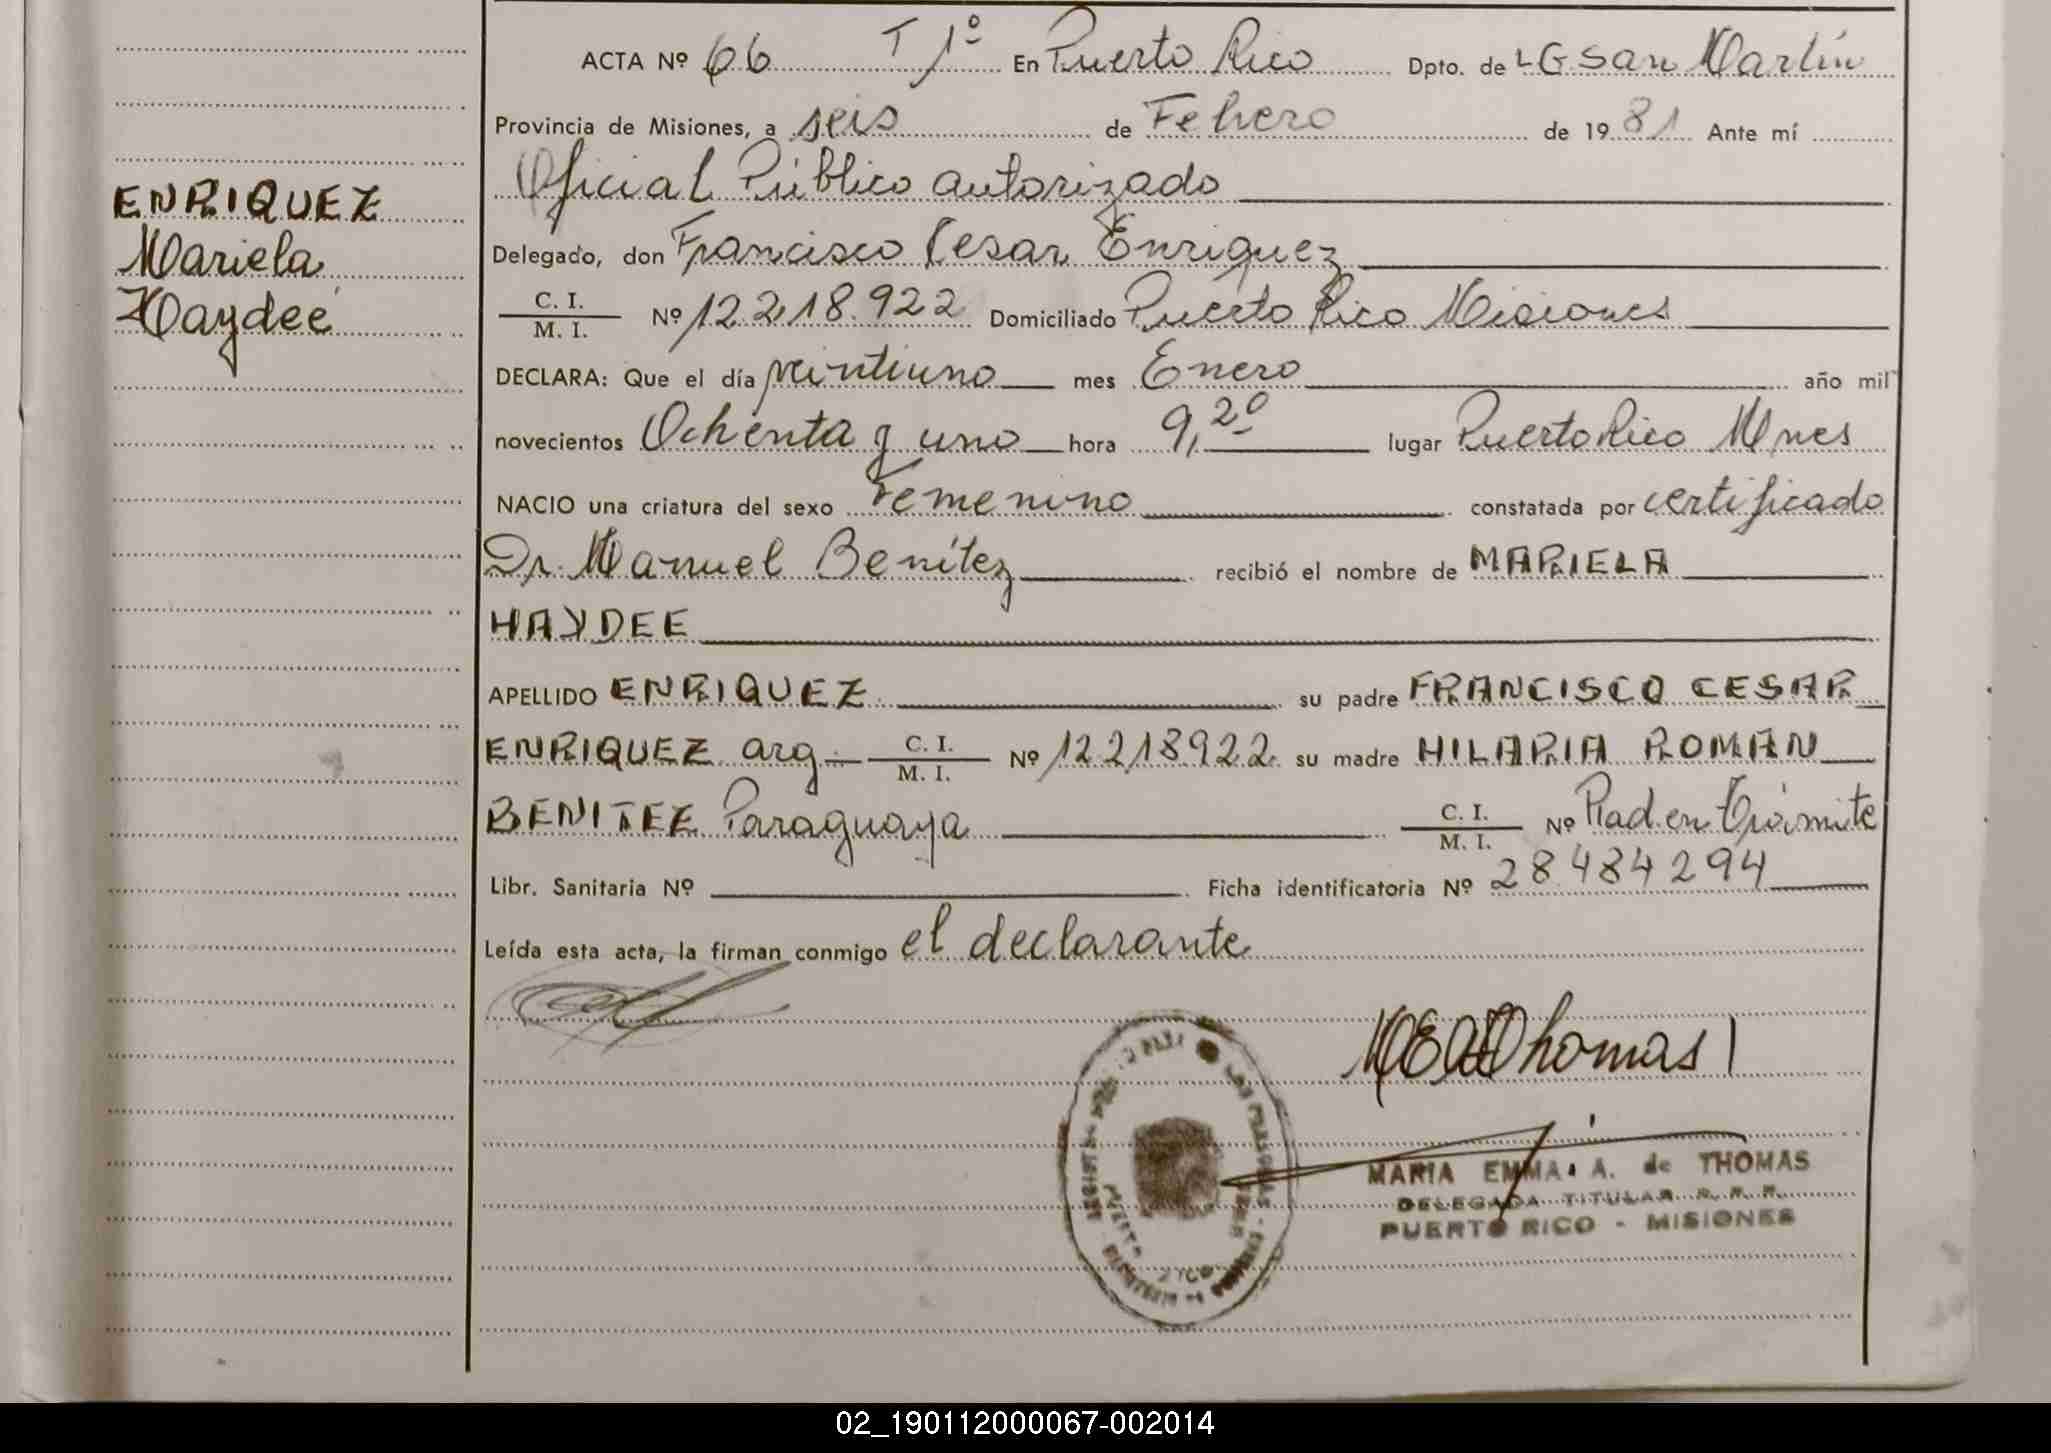 ENRIQUEZ
Mariela
Haydeé
ACTA Nº 66 T 1º En Puerto Rico Dpto. de LG San Martín
Provincia de Misiones, a seis de Febrero de 1981 Ante mí
Oficial Público autorizado
Delegado, don Francisco Cesar Enriquez
C. I.
M. I. Nº 12218.922 Domiciliado Puerto Rico Misiones
DECLARA: Que el día veintiuno mes Enero año mil
novecientos Ochenta y uno hora 9,20 lugar Puerto Rico Mnes
NACIO una criatura del sexo Femenino constatada por certificado
Dr. Manuel Benítez recibió el nombre de MARIELA
HAYDEE
APELLIDO ENRIQUEZ su padre FRANCISCO CESAR
ENRIQUEZ arg. C. I.
M. I. Nº 12218922 su madre HILARIA ROMAN
BENITEZ Paraguaya C. I.
M. I. Nº Rad. en Trámite
Libr. Sanitaria Nº Ficha identificatoria Nº 28484294
Leída esta acta, la firman conmigo el declarante
MEAThomas
MARIA EMMA A. de THOMAS
DELEGADA TITULAR R. P. P.
PUERTO RICO - MISIONES
02_190112000067-002014